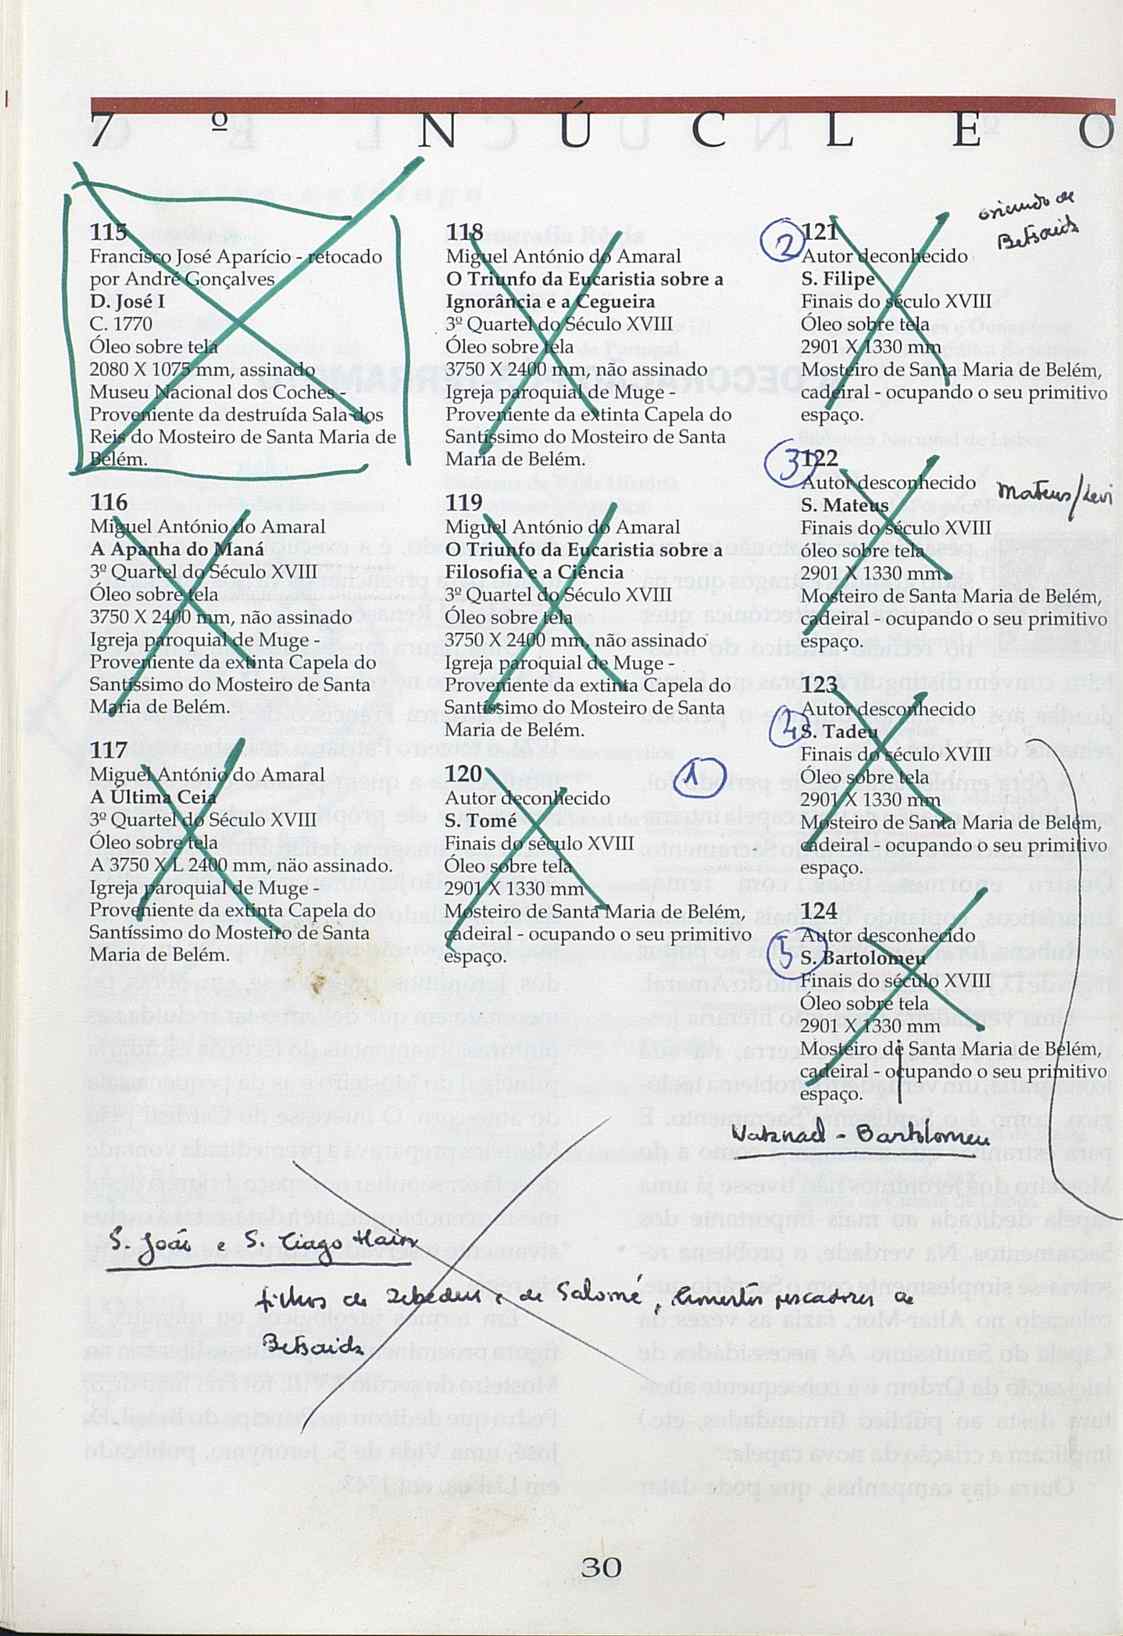 7º NÚCLEO
115
Francisco José Aparício - retocado
por André Gonçalves
D. José I
C. 1770
Óleo sobre tela
2080 X 1075 mm, assinado
Museu Nacional dos Coches -
Proveniente da destruída Sala dos
Reis do Mosteiro de Santa Maria de
Belém.
116
Miguel António do Amaral
A Apanha do Maná
3º Quartel do Século XVIII
Óleo sobre tela
3750 X 2400 mm, não assinado
Igreja paroquial de Muge -
Proveniente da extinta Capela do
Santíssimo do Mosteiro de Santa
Maria de Belém.
117
Miguel António do Amaral
A Última Ceia
3º Quartel do Século XVIII
Óleo sobre tela
A 3750 X L 2400 mm, não assinado.
Igreja paroquial de Muge -
Proveniente da extinta Capela do
Santíssimo do Mosteiro de Santa
Maria de Belém.
118
Miguel António do Amaral
O Triunfo da Eucaristia sobre a
Ignorância e a Cegueira
3º Quartel do Século XVIII
Óleo sobre tela
3750 X 2400 mm, não assinado
Igreja paroquial de Muge -
Proveniente da extinta Capela do
Santíssimo do Mosteiro de Santa
Maria de Belém.
119
Miguel António do Amaral
O Triunfo da Eucaristia sobre a
Filosofia e a Ciência
3º Quartel do Século XVIII
Óleo sobre tela
3750 X 2400 mm, não assinado
Igreja paroquial de Muge -
Proveniente da extinta Capela do
Santíssimo do Mosteiro de Santa
Maria de Belém.
1
120
Autor deconhecido
S. Tomé
Finais do século XVIII
Óleo sobre tela
2901 X 1330 mm
Mosteiro de Santa Maria de Belém,
cadeiral - ocupando o seu primitivo
espaço.
oriundo de
Betsaida
2
121
Autor deconhecido
S. Filipe
Finais do século XVIII
Óleo sobre tela
2901 X 1330 mm
Mosteiro de Santa Maria de Belém,
cadeiral - ocupando o seu primitivo
espaço.
3
122
Autor desconhecido
S. Mateus
Mateus/Levi
Finais do século XVIII
óleo sobre tela
2901 X 1330 mm
Mosteiro de Santa Maria de Belém,
cadeiral - ocupando o seu primitivo
espaço.
123
Autor desconhecido
4
S. Tadeu
Finais do século XVIII
Óleo sobre tela
2901 X 1330 mm
Mosteiro de Santa Maria de Belém,
cadeiral - ocupando o seu primitivo
espaço.
124
Autor desconhecido
5
S. Bartolomeu
Finais do século XVIII
Óleo sobre tela
2901 X 1330 mm
Mosteiro de Santa Maria de Belém,
cadeiral - ocupando o seu primitivo
espaço.
Natanael - Bartolomeu
S. João e S. Tiago Maior
filhos de Zebedeu e de Salomé, pescadores de
Betsaida
30